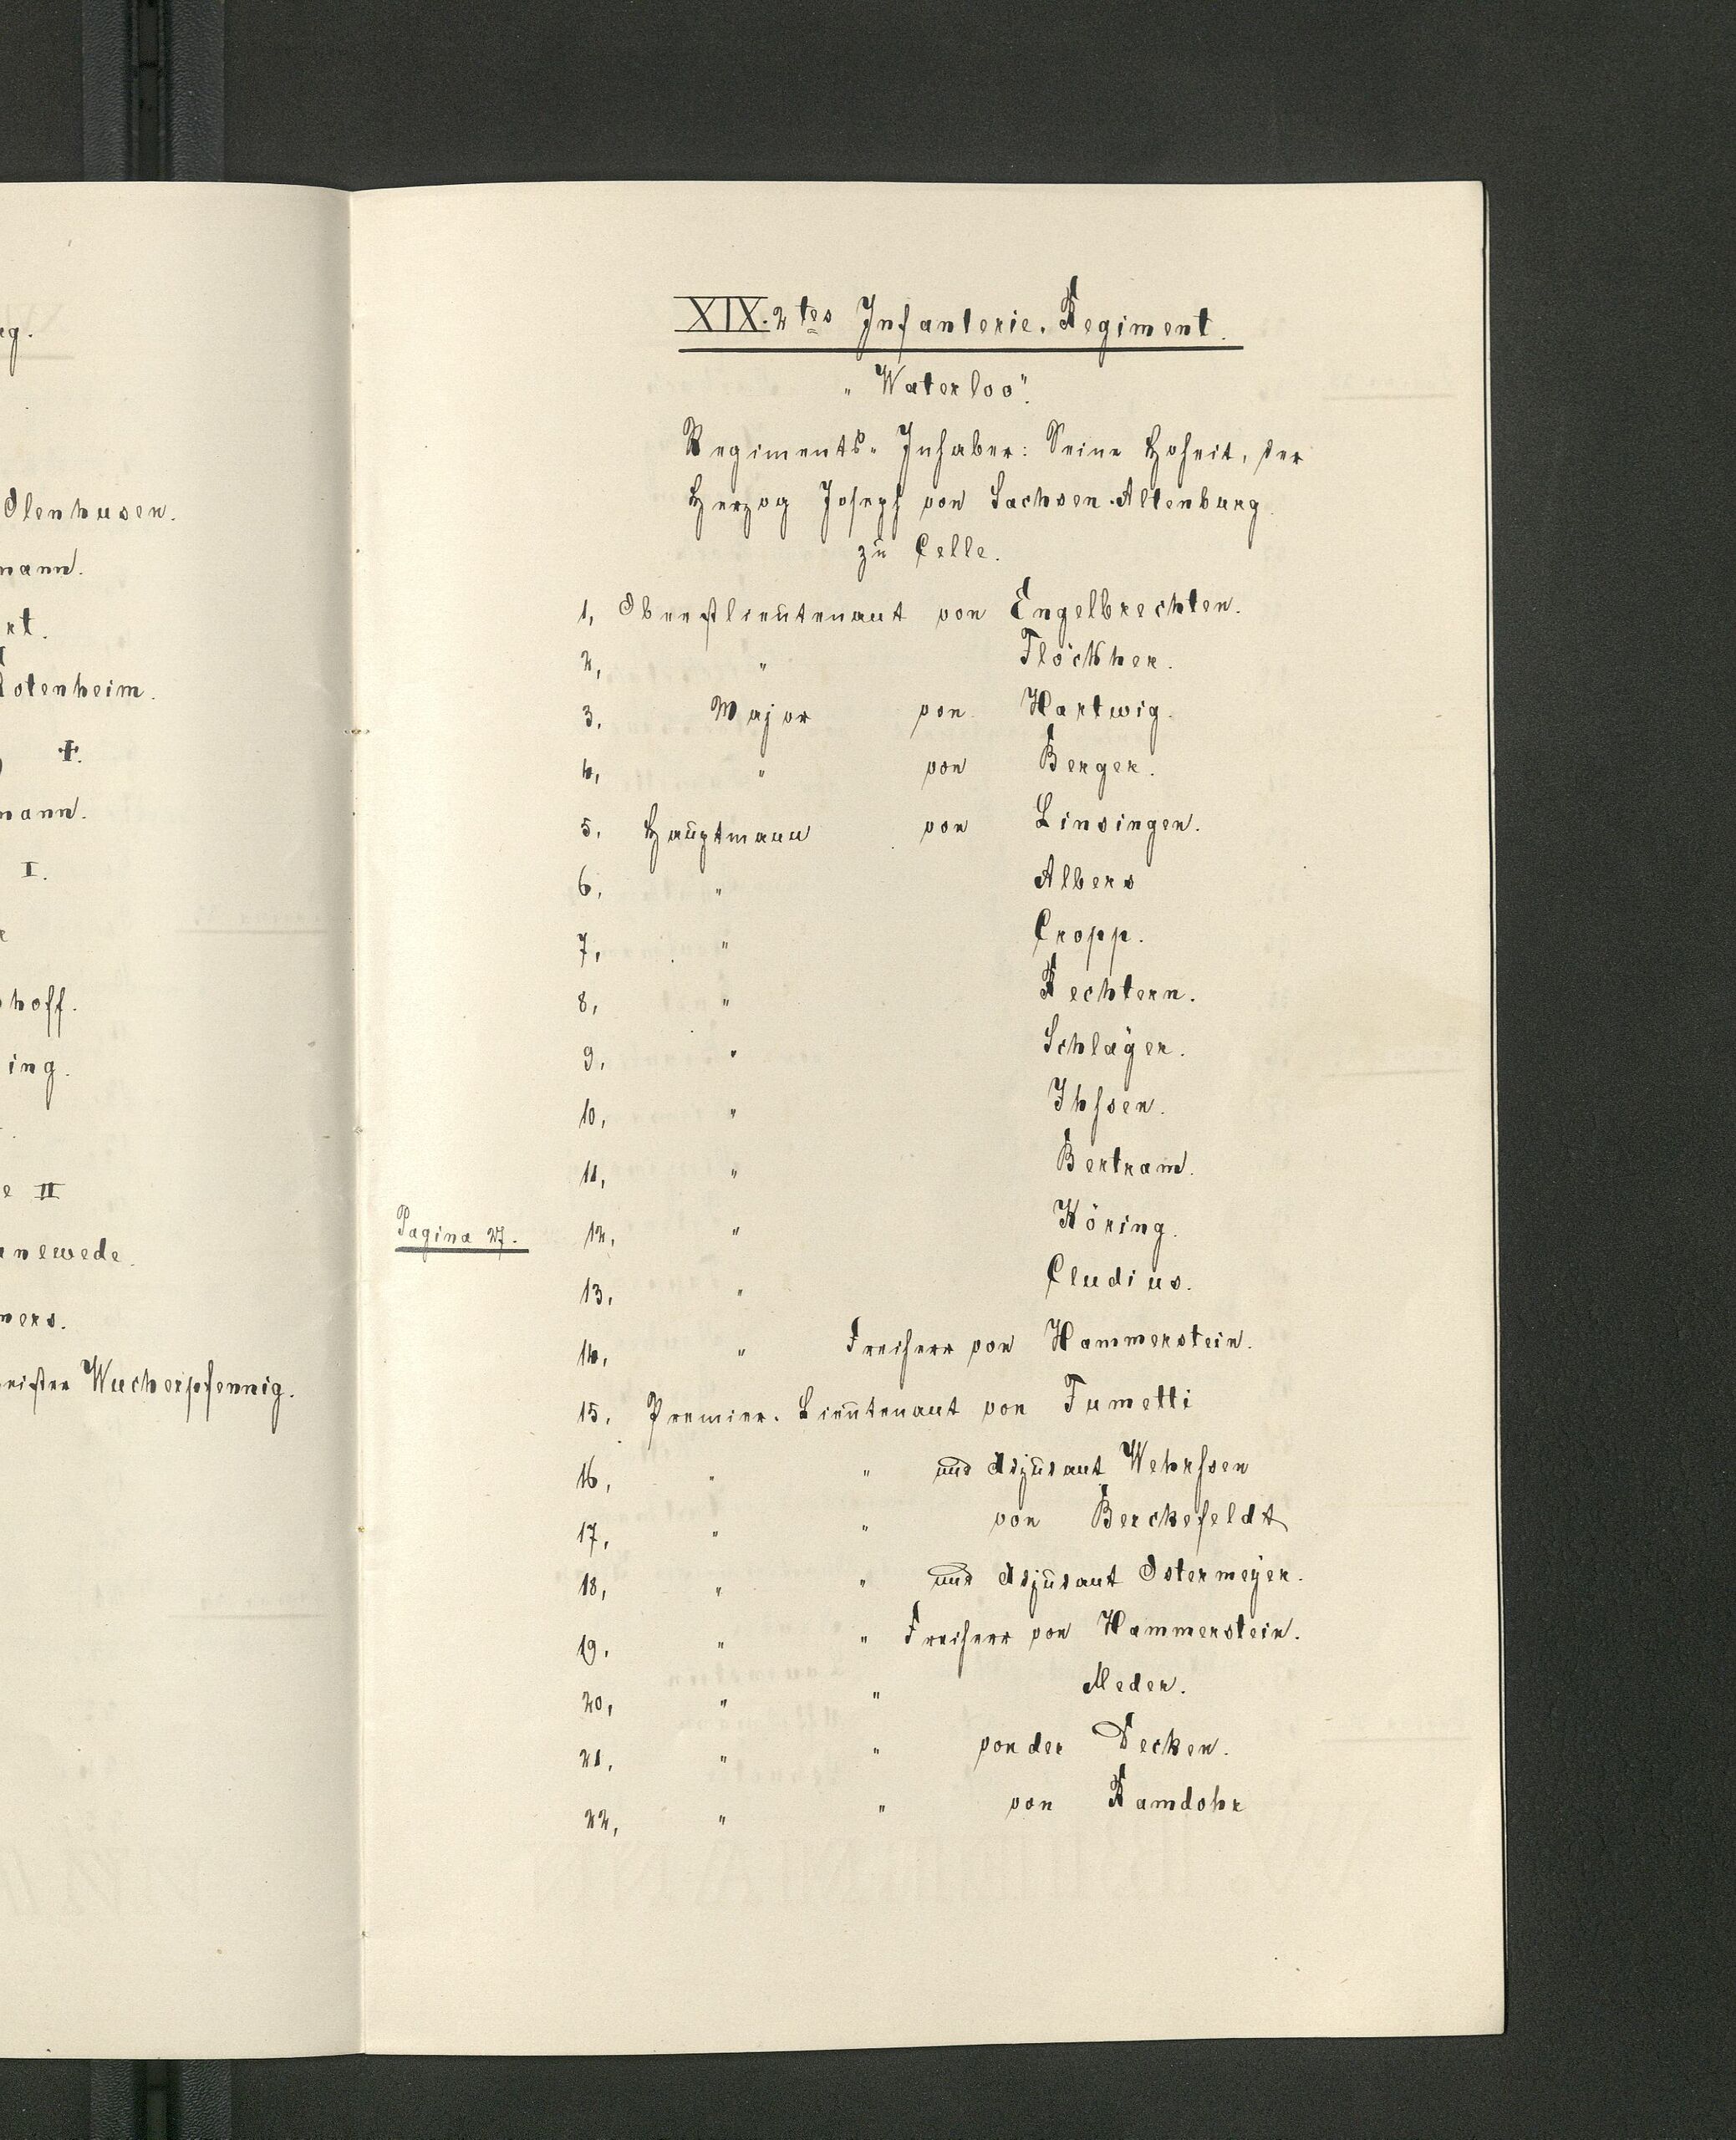 eg.
Olenhusen.
mann.
rt.
Rotenheim.
+.
mann.
I.
hoff.
ing.
e II
anewede.
mers.
Wucherpfennig.
XIX. 2tes Infanterie-Regiment.
"Waterloo".
Regiments-Inhaber: Seine Hoheit, der
Herzog Joseph von Sachsen-Altenburg
zu Celle.
1, Oberstlieutenant von Engelbrechten.
2, " Flöckher.
3, Major von Hartwig.
4, " von Berger.
5, Hauptmann von Linsingen.
6, " Albers
7, " Cropp.
8, " Rechtern.
9, " Schläger.
10, " Ihssen.
11, " Bertram.
Pagina 27. 12, " Höring.
13, " Cludius.
14, " Freiherr von Hammerstein.
15, Premier-Lieutenant von Fumetti
16, " " und Adjudant Wehrssen
17, " " von Berckefeldt
18, " " und Adjudant Ostermeyer.
19, " " Freiherr von Hammerstein.
20, " " Meder.
21, " " von der Decken.
22, " " von Ramdohr